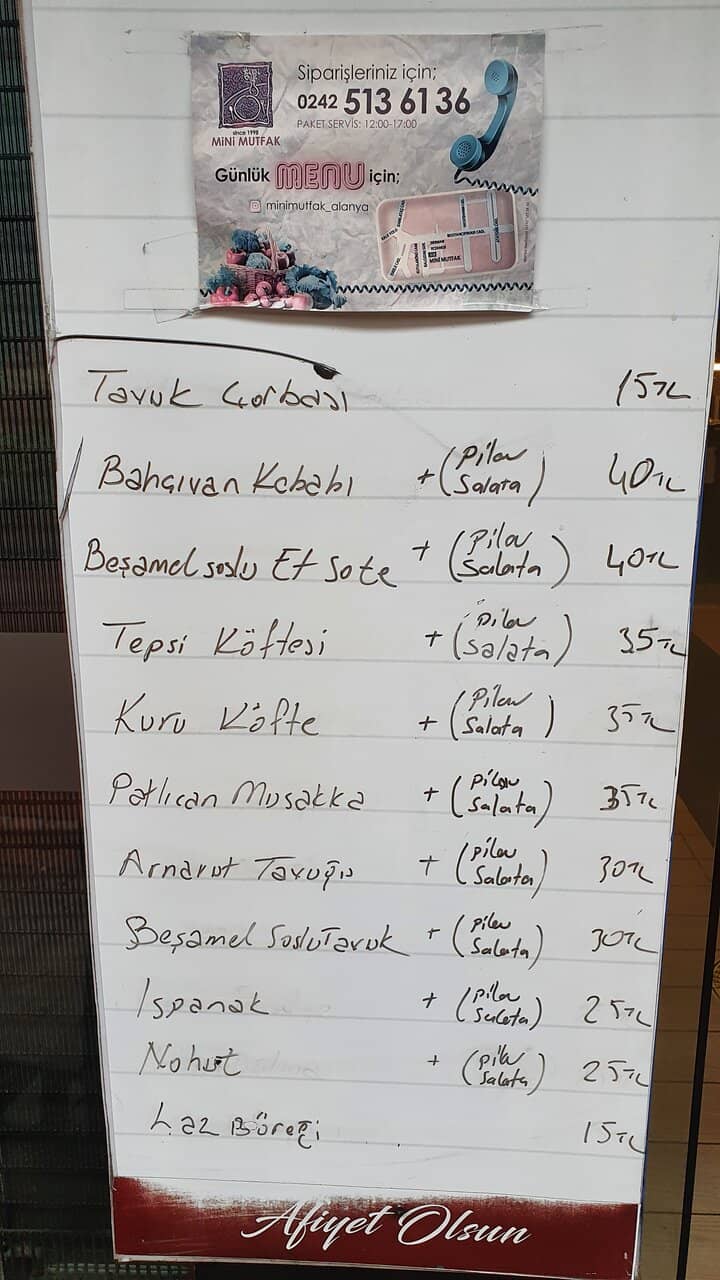 Siparişleriniz için;
0242 513 61 36
PAKET SERVİS: 12:00-17:00
since 1998
MİNİ MUTFAK
Günlük MENU için;
minimutfak_alanya
MİNİ MUTFAK
Tavuk Çorbası 15 TL
Bahçıvan Kebabı + (Pilav Salata) 40 TL
Beşamel soslu Et Sote + (Pilav Salata) 40 TL
Tepsi Köftesi + (Pilav Salata) 35 TL
Kuru Köfte + (Pilav Salata) 35 TL
Patlıcan Musakka + (Pilav Salata) 35 TL
Arnavut Tavuğu + (Pilav Salata) 30 TL
Beşamel Soslu Tavuk + (Pilav Salata) 30 TL
Ispanak + (Pilav Salata) 25 TL
Nohut + (Pilav Salata) 25 TL
Laz Böreği 15 TL
Afiyet Olsun